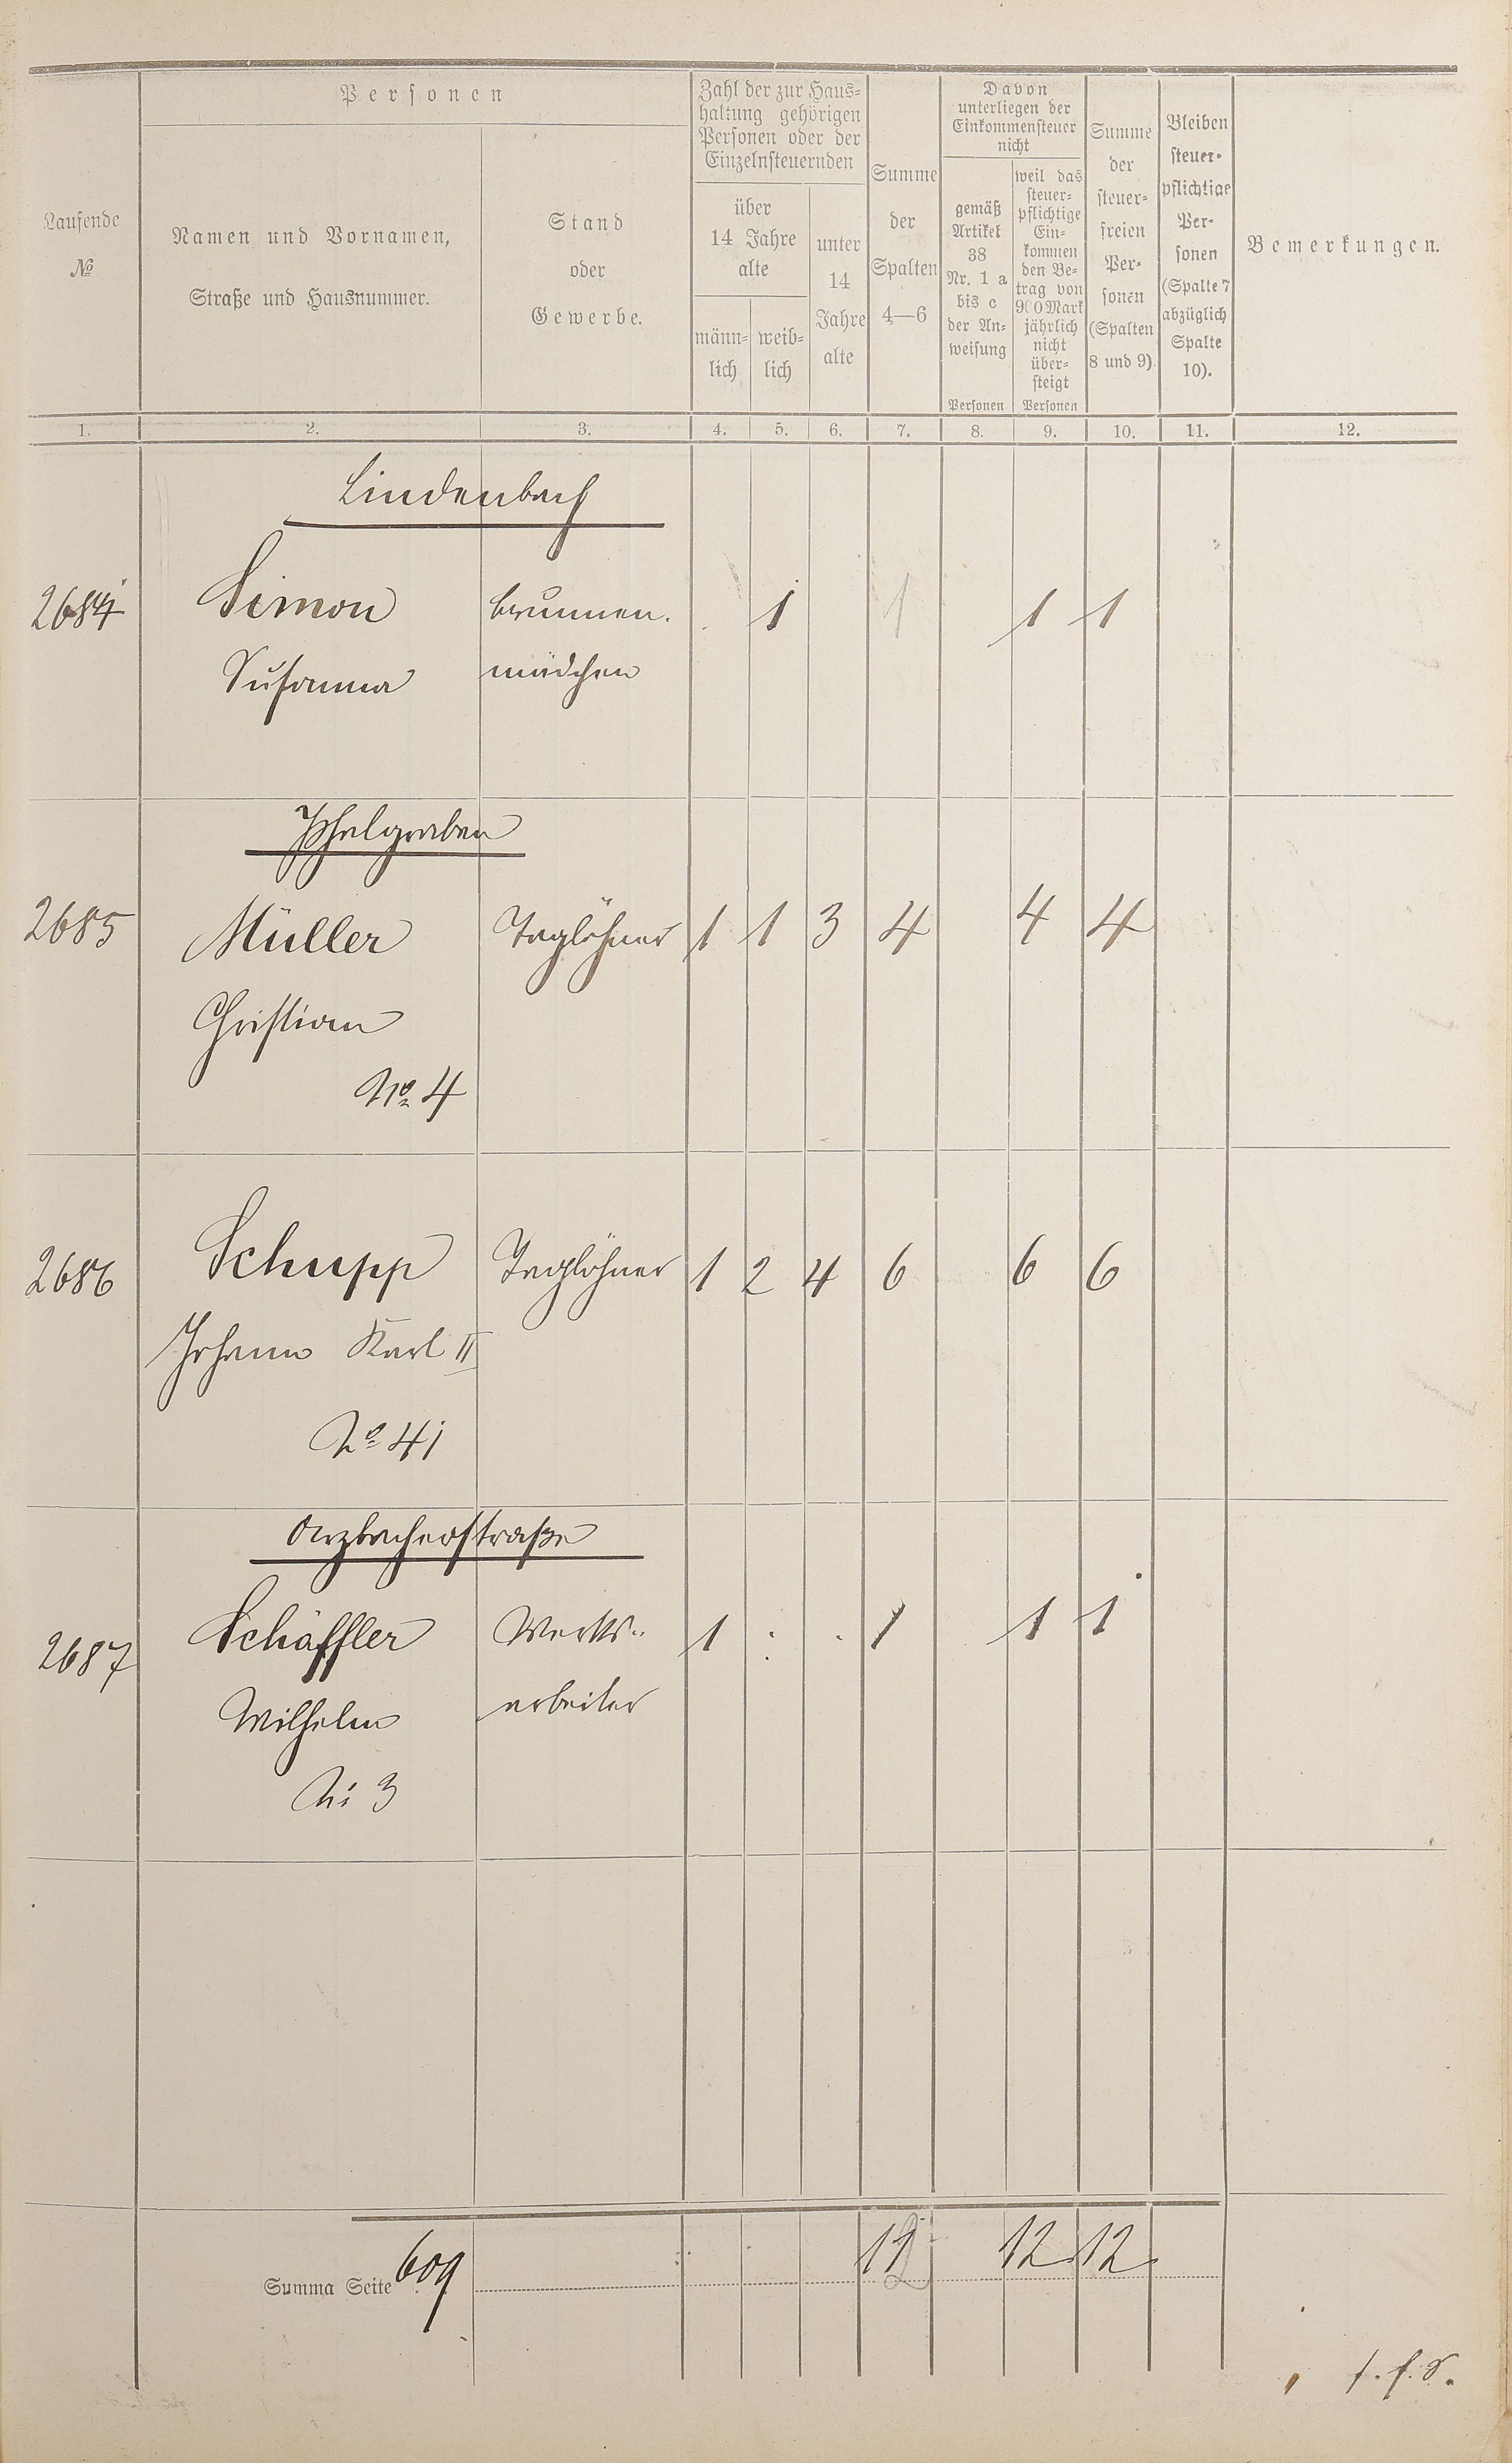 Personen
Zahl der zur Haus-
haltung gehörigen
Personen oder der
Einzelnsteuernden
Davon
unterliegen der
Einkommensteuer
nicht
Laufende
№
Namen und Vornamen,
Straße und Hausnummer.
Stand
oder
Gewerbe.
über
14 Jahre
alte
männ-
lich
weib-
lich
unter
14
Jahre
alte
Summe
der
Spalten
4—6
gemäß
Artikel
38
Nr. 1 a
bis c
der An-
weisung
Personen
weil das
steuer-
pflichtige
Ein-
kommen
den Be-
trag von
900 Mark
jährlich
nicht
über-
steigt
Personen
Summe
der
steuer-
freien
Per-
sonen
(Spalten
8 und 9).
Bleiben
steuer-
pflichtige
Per-
sonen
(Spalte 7
abzüglich
Spalte
10).
Bemerkungen.
1. 2. 3. 4. 5. 6. 7. 8. 9. 10. 11. 12.
Lindenbach
2684 Simon Brunnen. 1 1 1 1
Susanna mädchen
Pfhlgraben
2685 Müller Taglöhner 1 1 3 4 4 4
Christian
No. 4
2686 Schupp Taglöhner 1 2 4 6 6 6
Johann Karl II
No 41
Arzbacherstraße
2687 Schäffler Werks- 1 . . 1 1 1
Wilhelm arbeiter
No 3
Summa Seite 609 12 12 12